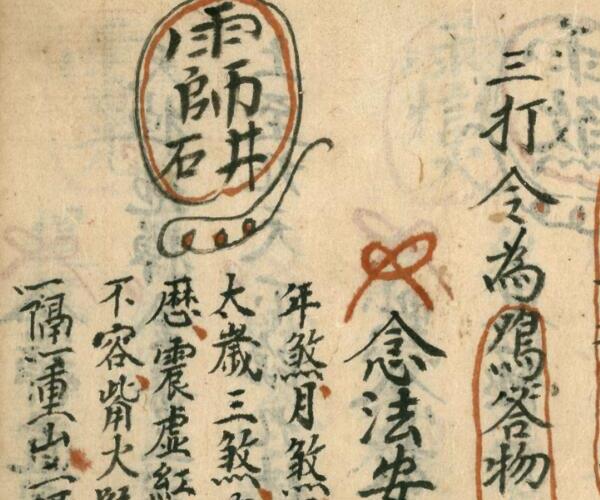 三打令為鳴答物
念法安
年煞月煞
太歲三煞
雷師井石
厯震虛紅
不容觜火
一隔一重山